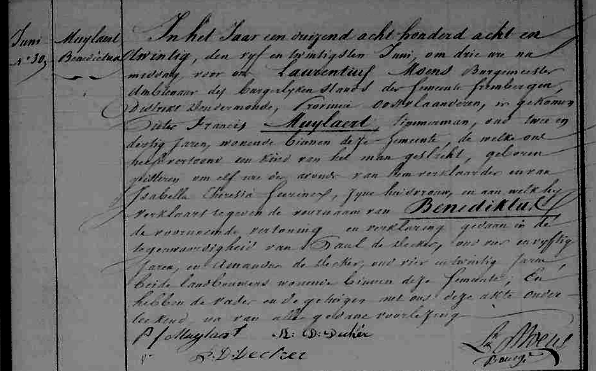 Juni
N° 30
Muylaert
Benedictus
In het Jaar een duizend acht honderd acht en
twintig, den vyf en twintigsten Juni, om drie ure na
middag, voor ons Laurentius Moens Burgemeester
Ambtenaar des burgerlyken stands der Gemeente
district Dendermonde, Provincie Oostvlaanderen, is gekomen
Pieter Francis Muylaert Timmerman, oud twee en
dertig Jaren, wonende binnen deze Gemeente, de welke ons
heeft vertoont een Kind van het man geslacht, geboren
gisteren om elf ure des avonds van hem verklaarder en van
Isabella Theresia zyne huisvrouw, en aan welk hy
verklaart te geven de voornaam van Benediktus
de voornoemde vertoning en verklaring gedaan in de
tegenwoordigheid van Paul de Decker, oud vier en vyftig
Jaren, en Amandus de Decker, oud vier en twintig Jaren,
beide Landbouwers wonende binnen deze Gemeente, En
hebben de vader en de getuigen met ons deze akte onder-
teekend na van alle gedaane voorlezing
P f Muylaert
D: Decker
L Moens
P. D Decker
Bourg